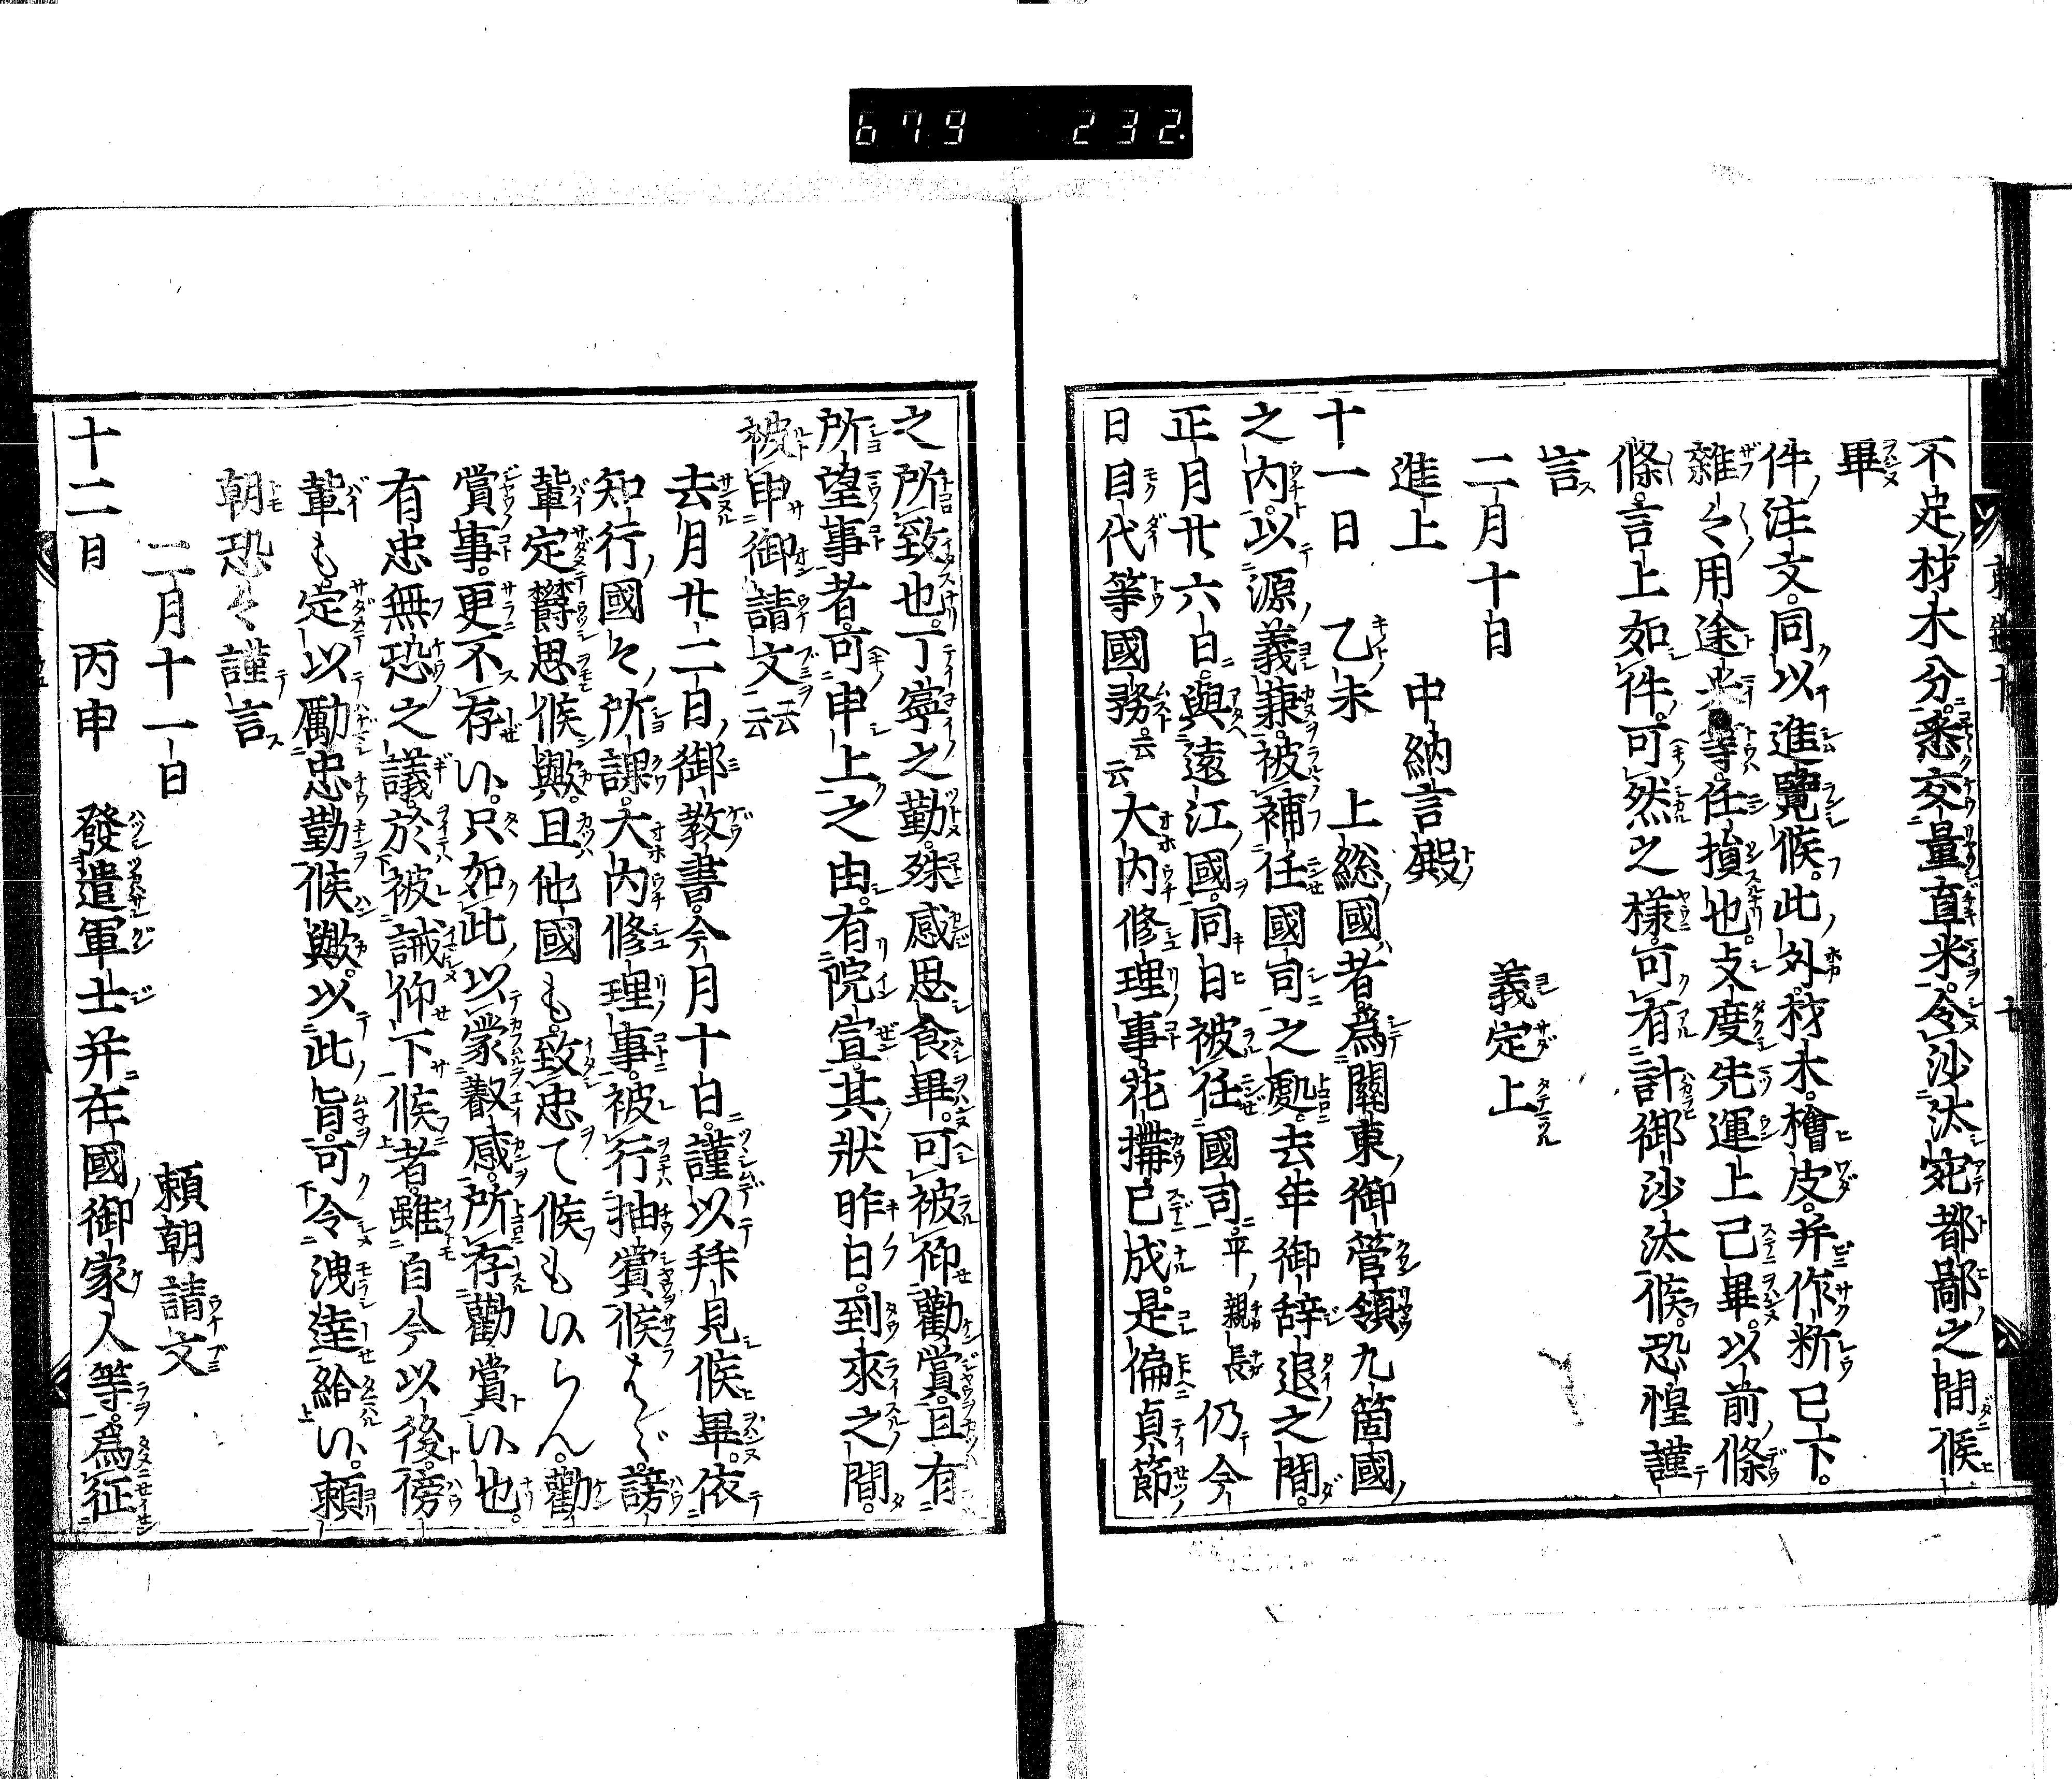 679 232.
不足材木分。悉交量直米。令沙汰宛都鄙之間候
畢
件注文。同以進覽候。此外。材木。檜皮。并作新已下。
雜〻用途。等。任損也。支度先運上已畢。以前條
條。言上如件。可然之様。可有計御沙汰候。恐惶謹
言
二月十日
義定上
進上 中納言殿
十一日 乙未 上総國者。為關東御管領九箇國
之内。以源義兼。被補任國司之處。去年御辞退之間。
正月廿六日。與遠江國。同日被任國司。平親長 仍今
日目代等國務。云云 大内修理事。花搆已成。是偏貞節
之所致也。丁寧之勤。殊感思食畢。可被仰勸賞。且有
所望事者。可申上之由。有院宣。其狀昨日。到來之間。
被申御請文云云
去月廿二日御教書。今月十日。謹以拜見候畢。依
知行國〻所課。大内修理事。被行抽賞候はゞ。謗
輩定欝思候歟。且他國も致忠て候もいらん。勸
賞事。更不存い。只如此以蒙叡感。所存勸賞い也。
有忠無恐之議。於被誡仰下候者。雖自今以後。傍
輩も。定以勵忠勤候歟。以此旨。可令洩達給い。賴
朝恐〻謹言
二月十一日 賴朝請文
十二日 丙申 發遣軍士并在國御家人等。為征